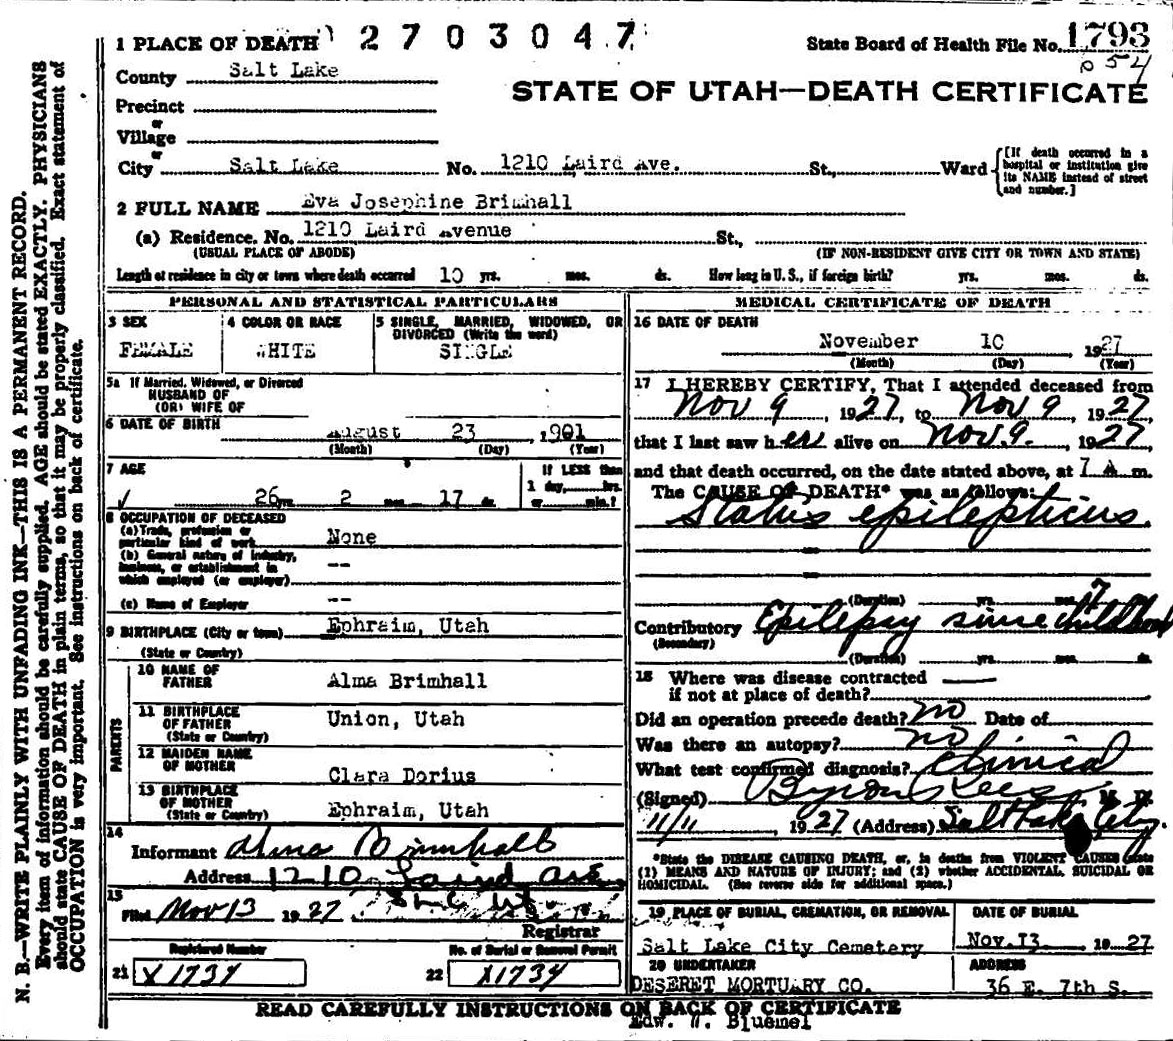 1 PLACE OF DEATH 2703047
State Board of Health File No. 1793
P 54
County Salt Lake
STATE OF UTAH—DEATH CERTIFICATE
Precinct
or
Village
or
City Salt Lake No. 1210 Laird Ave. St., Ward
[If death occurred in a hospital or institution give its NAME instead of street and number.]
2 FULL NAME Eva Josephine Brimhall
(a) Residence. No. 1210 Laird Avenue St.,
(USUAL PLACE OF ABODE) (IF NON-RESIDENT GIVE CITY OR TOWN AND STATE)
Length of residence in city or town where death occurred 10 yrs. mos. ds. How long in U. S., if foreign birth? yrs. mos. ds.
PERSONAL AND STATISTICAL PARTICULARS
3 SEX 4 COLOR OR RACE 5 SINGLE, MARRIED, WIDOWED, OR
DIVORCED (Write the word)
FEMALE WHITE SINGLE
5a If Married, Widowed, or Divorced
HUSBAND OF
(OR) WIFE OF
6 DATE OF BIRTH August 23, 1901
(Month) (Day) (Year)
7 AGE If LESS than
1 day, hrs.
26 yrs. 2 mos. 17 ds. or min.?
8 OCCUPATION OF DECEASED
(a) Trade, profession or
particular kind of work None
(b) General nature of industry,
business, or establishment in
which employed (or employer) --
(c) Name of Employer --
9 BIRTHPLACE (City or town) Ephraim, Utah
(State or Country)
PARENTS
10 NAME OF
FATHER Alma Brimhall
11 BIRTHPLACE
OF FATHER Union, Utah
(State or Country)
12 MAIDEN NAME
OF MOTHER Clara Dorius
13 BIRTHPLACE
OF MOTHER Ephraim, Utah
(State or Country)
14
Informant Alma Brimhall
Address 1210 Laird ave.
15
Filed Nov 13 1927
Registrar
Registered Number No. of Burial or Removal Permit
21 X1734 22 X1734
MEDICAL CERTIFICATE OF DEATH
16 DATE OF DEATH
November 10 1927
(Month) (Day) (Year)
17 I HEREBY CERTIFY, That I attended deceased from
Nov 9, 1927, to Nov 9, 1927,
that I last saw her alive on Nov. 9, 1927,
and that death occurred, on the date stated above, at 7 A m.
The CAUSE OF DEATH* was as follows:
Status epilepticus.
(Duration) yrs. mos.
Contributory Epilepsy since childhood
(Secondary) (Duration) yrs. mos. ds.
18 Where was disease contracted
if not at place of death?
Did an operation precede death? no Date of
Was there an autopsy? no
What test confirmed diagnosis? Clinical
(Signed) Byron Rees M. D.
11/11, 1927 (Address) Salt Lake City.
*State the DISEASE CAUSING DEATH, or, in deaths from VIOLENT CAUSES state
(1) MEANS AND NATURE OF INJURY; and (2) whether ACCIDENTAL, SUICIDAL OR
HOMICIDAL. (See reverse side for additional space.)
19 PLACE OF BURIAL, CREMATION, OR REMOVAL DATE OF BURIAL
Salt Lake City Cemetery Nov. 13 1927
20 UNDERTAKER ADDRESS
DESERET MORTUARY CO. 36 E. 7th S.
READ CAREFULLY INSTRUCTIONS ON BACK OF CERTIFICATE
Edw. W. Bluemel
N. B.—WRITE PLAINLY WITH UNFADING INK—THIS IS A PERMANENT RECORD.
Every item of information should be carefully supplied. AGE should be stated EXACTLY. PHYSICIANS
should state CAUSE OF DEATH in plain terms, so that it may be properly classified. Exact statement of
OCCUPATION is very important. See instructions on back of certificate.